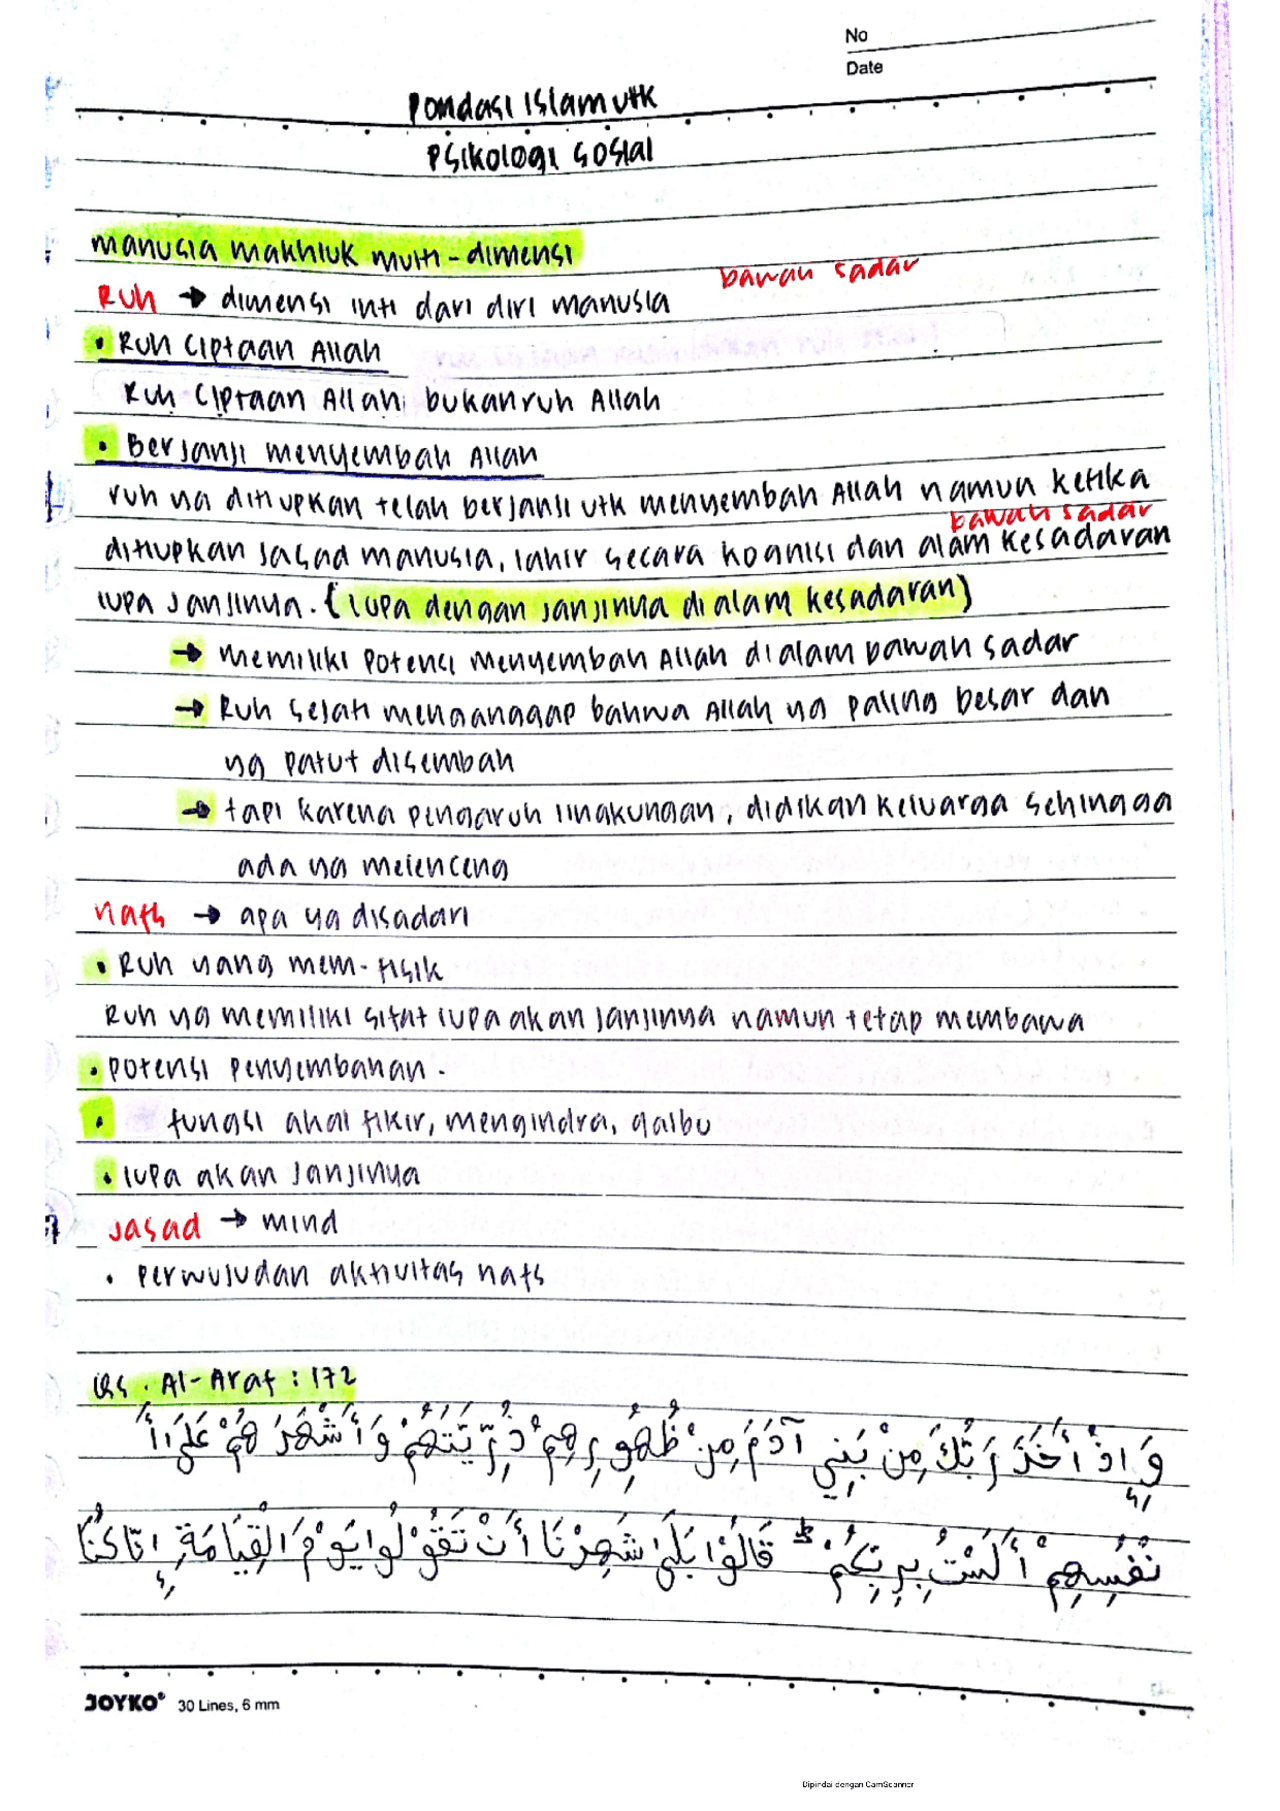 No
Date
Pondasi Islam utk
Psikologi Sosial
manusia makhluk multi-dimensi
bawah sadar
Ruh → dimensi inti dari diri manusia
• Ruh Ciptaan Allah
Ruh Ciptaan Allah, bukan ruh Allah
• Berjanji menyembah Allah
ruh yg ditiupkan telah berjanji utk menyembah Allah namun ketika
bawah sadar
ditiupkan jasad manusia, lahir secara kognisi dan alam kesadaran
lupa janjinya. (lupa dengan janjinya di alam kesadaran)
→ memiliki potensi menyembah Allah di alam bawah sadar
→ Ruh sejati menganggap bahwa Allah yg paling besar dan
yg patut disembah
→ tapi karena pengaruh lingkungan, didikan keluarga sehingga
ada yg melenceng
nafs → apa yg disadari
• Ruh yang mem-fisik
Ruh yg memiliki sifat lupa akan janjinya namun tetap membawa
• potensi penyembahan.
• fungsi akal fikir, mengindra, qalbu
• lupa akan janjinya
jasad → mind
• perwujudan aktivitas nafs
QS. Al-Araf : 172
وَإِذْ أَخَذَ رَبُّكَ مِنْ بَنِي آدَمَ مِنْ ظُهُورِهِمْ ذُرِّيَّتَهُمْ وَأَشْهَدَهُمْ عَلَىٰ أَ
نْفُسِهِمْ أَلَسْتُ بِرَبِّكُمْ ۖ قَالُوْا بَلَىٰ شَهِدْنَا أَنْ تَقُوْلُوا يَوْمَ الْقِيَامَةِ إِنَّا كُنَّا
JOYKO® 30 Lines, 6 mm
Dipindai dengan CamScanner